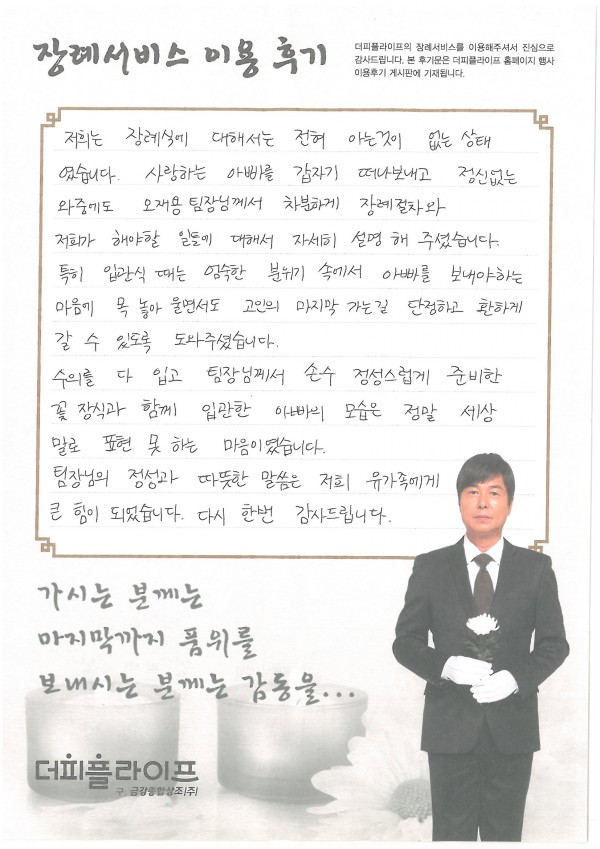 장례서비스 이용 후기
더피플라이프의 장례서비스를 이용해주셔서 진심으로
감사드립니다. 본 후기문은 더피플라이프 홈페이지 행사
이용후기 게시판에 기재됩니다.
저희는 장례식에 대해서는 전혀 아는것이 없는 상태
였습니다. 사랑하는 아빠를 갑자기 떠나보내고 정신없는
와중에도 오재용 팀장님께서 차분하게 장례절차와
저희가 해야할 일들에 대해서 자세히 설명 해 주셨습니다.
특히 입관식 때는 엄숙한 분위기 속에서 아빠를 보내야하는
마음에 목 놓아 울면서도 고인의 마지막 가는길 단정하고 환하게
갈 수 있도록 도와주셨습니다.
수의를 다 입고 팀장님께서 손수 정성스럽게 준비한
꽃 장식과 함께 입관한 아빠의 모습은 정말 세상
말로 표현 못 하는 마음이였습니다.
팀장님의 정성과 따뜻한 말씀은 저희 유가족에게
큰 힘이 되었습니다. 다시 한번 감사드립니다.
가시는 분께는
마지막까지 품위를
보내시는 분께는 감동을...
더피플라이프
구. 금강종합상조(주)